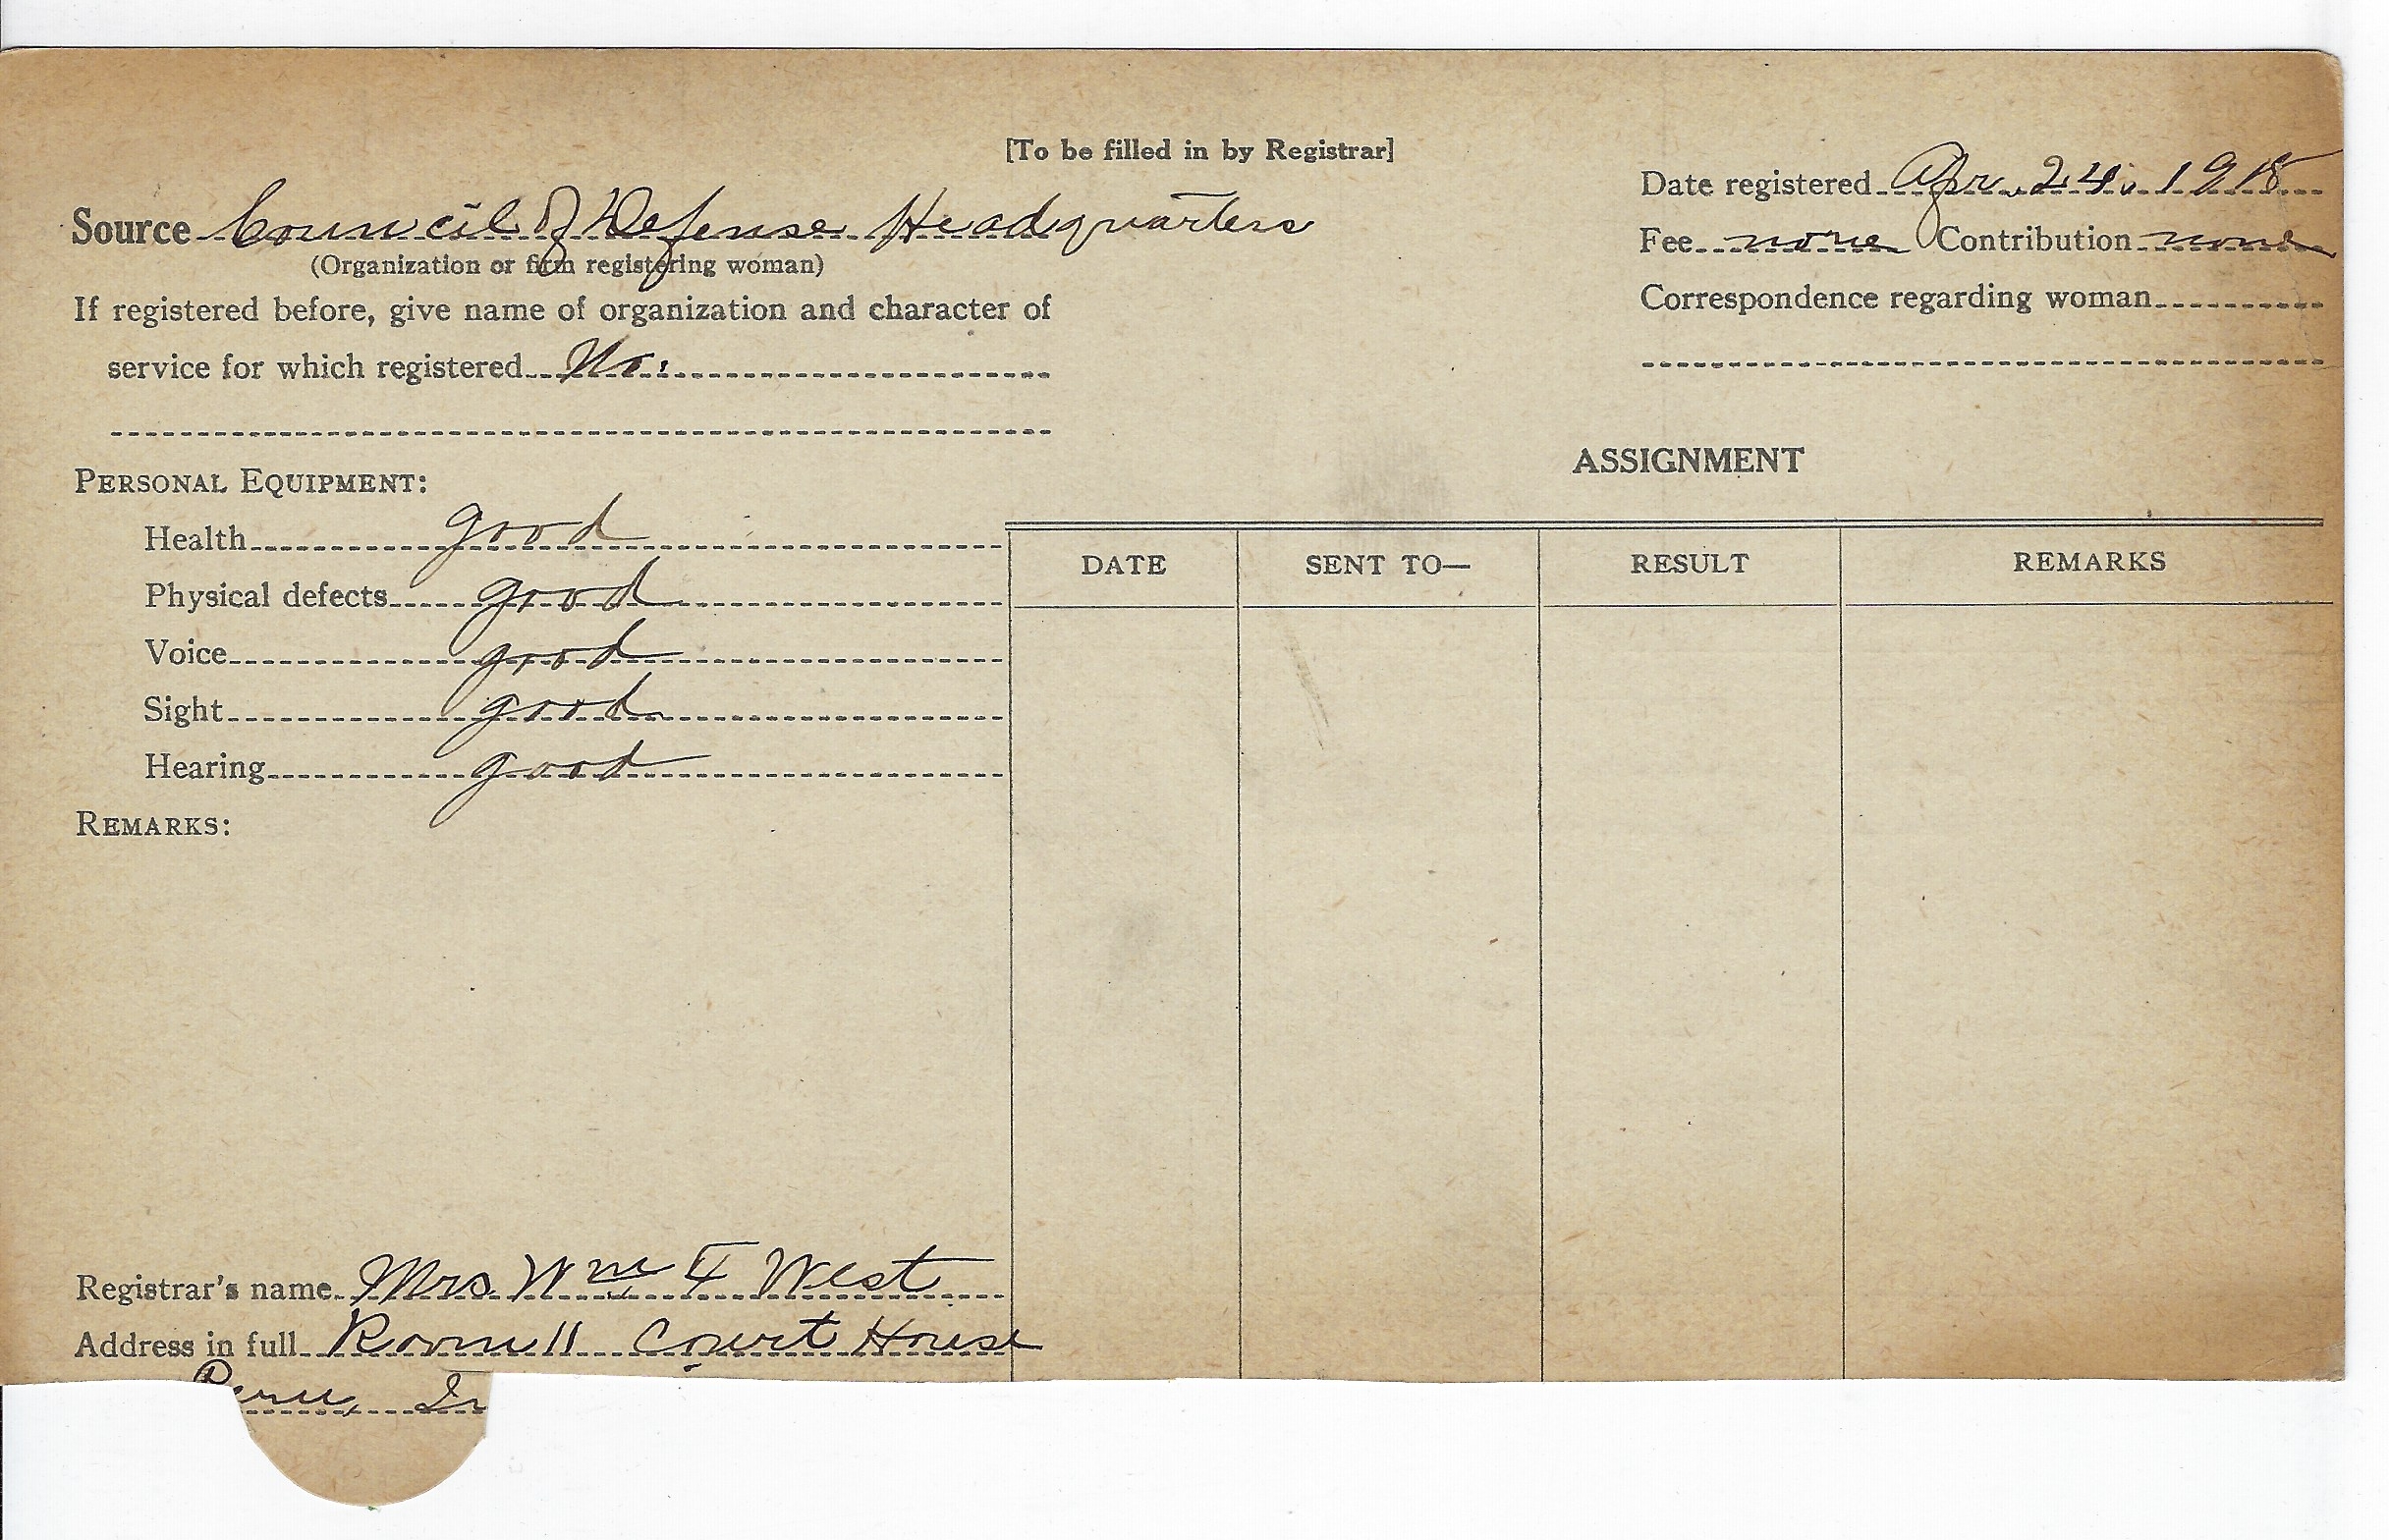 [To be filled in by Registrar]
Date registered Apr. 24. 1918
Source Council of Defense Headquarters
(Organization or firm registering woman)
Fee none Contribution none
If registered before, give name of organization and character of
service for which registered No.
Correspondence regarding woman
PERSONAL EQUIPMENT:
Health good
Physical defects good
Voice good
Sight good
Hearing good
REMARKS:
ASSIGNMENT
DATE SENT TO— RESULT REMARKS
Registrar's name Mrs. Wm F West
Address in full Room 11 Court House
Peru, In